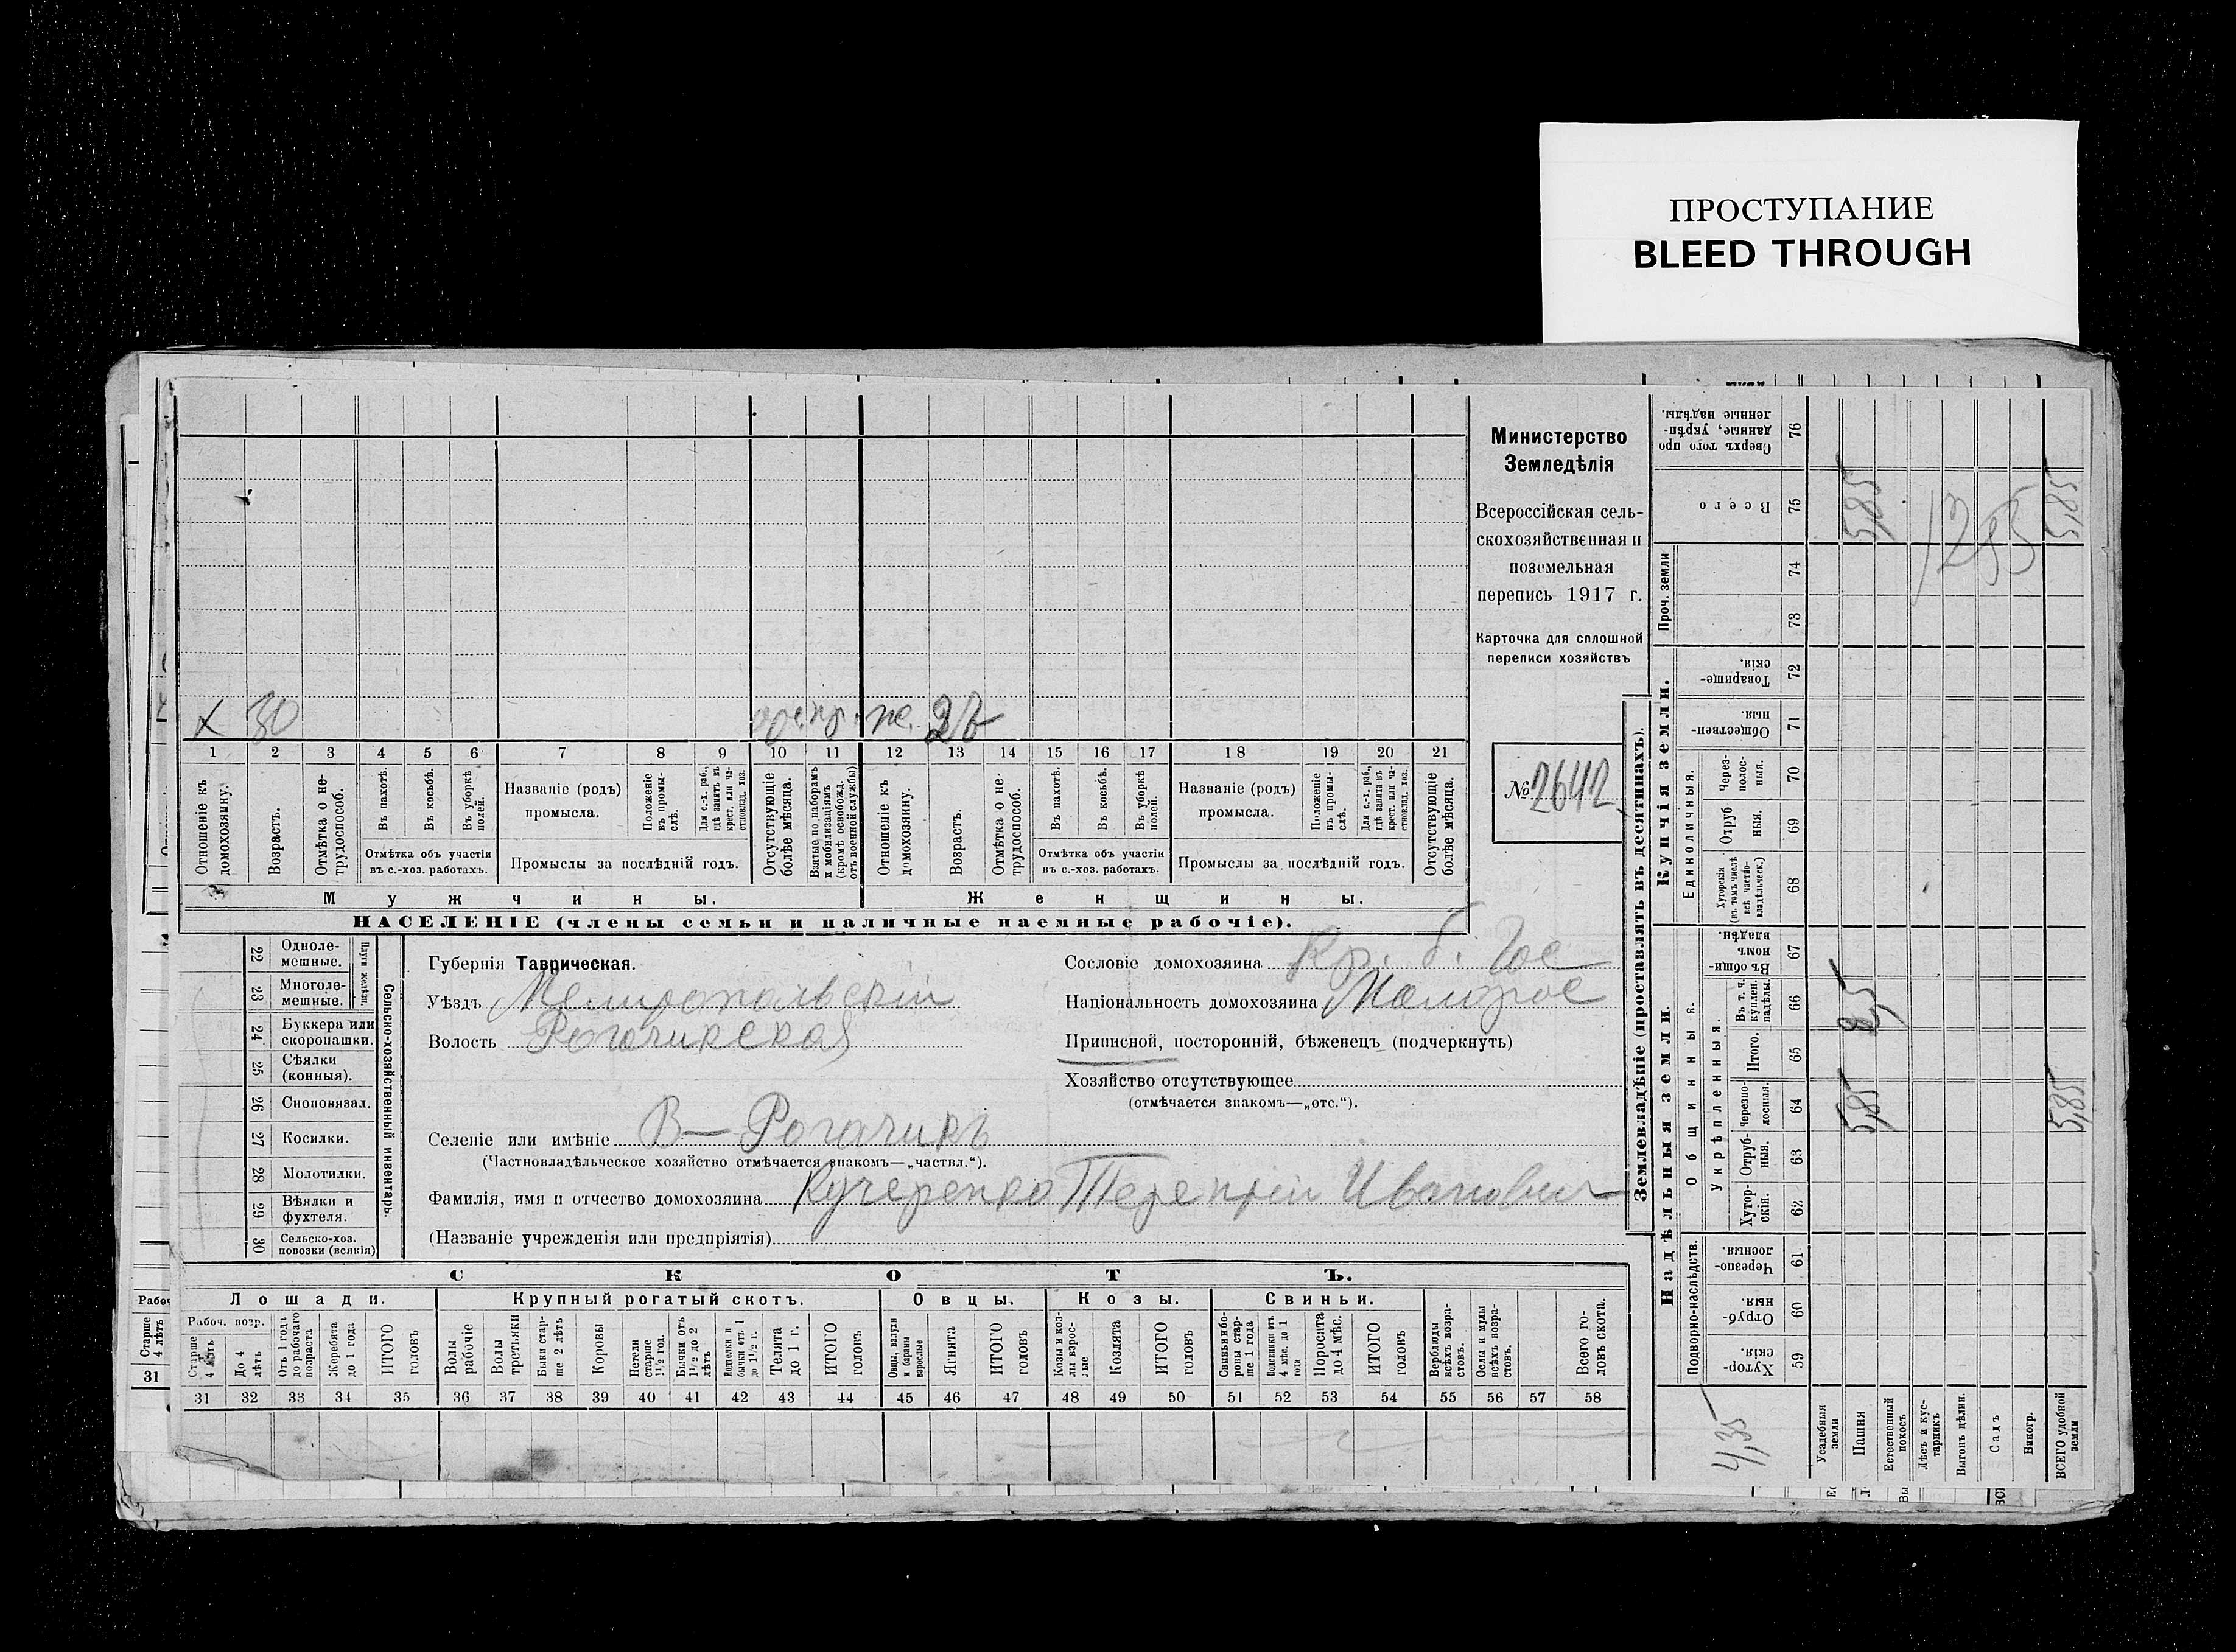 ПРОСТУПАНИЕ
BLEED THROUGH
Министерство
Земледѣлія
Всероссійская сель-
скохозяйственная и
поземельная
перепись 1917 г.
Карточка для сплошной
переписи хозяйствъ
№ 2642
х 30 же. 28
1 2 3 4 5 6 7 8 9 10 11 12 13 14 15 16 17 18 19 20 21
Отношеніе къ домохозяину.
Возрастъ.
Отмѣтка о не-трудоспособ.
Въ пахотѣ.
Въ косьбѣ.
Въ уборкѣ полей.
Отмѣтка объ участіи
въ с.-хоз. работахъ.
Названіе (родъ)
промысла.
Положеніе въ промы-слѣ.
Для с.-х. раб., гдѣ занятъ въ крест. или ча-стновлад. хоз.
Промыслы за послѣдній годъ.
Отсутствующіе болѣе мѣсяца.
Взятые по наборамъ и мобилизаціямъ (кромѣ освобожд. отъ военной службы)
Отношеніе къ домохозяину.
Возрастъ.
Отмѣтка о не-трудоспособ.
Въ пахотѣ.
Въ косьбѣ.
Въ уборкѣ полей.
Отмѣтка объ участіи
въ с.-хоз. работахъ.
Названіе (родъ)
промысла.
Положеніе въ промы-слѣ.
Для с.-х. раб., гдѣ занята въ крест. или ча-стновлад. хоз.
Промыслы за послѣдній годъ.
Отсутствующіе болѣе мѣсяца.
Мужчины.
Женщины.
НАСЕЛЕНІЕ (члены семьи и наличные наемные рабочіе).
Губернія Таврическая.
Уѣздъ Мелитопольскій
Волость Рогачикская
Селеніе или имѣніе В-Рогачикъ
(Частновладѣльческое хозяйство отмѣчается знакомъ—„частвл.“).
Фамилія, имя и отчество домохозяина Кучеренко Терентій Иванович
(Названіе учрежденія или предпріятія)
Сословіе домохозяина Кр. б. Гос
Національность домохозяина Малорос
Приписной, посторонній, бѣженецъ (подчеркнуть)
Хозяйство отсутствующее
(отмѣчается знакомъ—„отс.“).
Сельско-хозяйственный инвентарь.
22 Одноле-мешные.
23 Многоле-мешные.
24 Буккера или скоропашки.
25 Сѣялки (конныя).
26 Сноповязал.
27 Косилки.
28 Молотилки.
29 Вѣялки и фухтеля.
30 Сельско-хоз. повозки (всякія)
СКОТЪ.
Лошади.
Крупный рогатый скотъ.
Овцы.
Козы.
Свиньи.
Рабоч. возр.
Старше 4 лѣтъ
До 4 лѣтъ
Отъ 1 года до рабочаго возраста
Жеребята до 1 года
ИТОГО головъ
Волы рабочіе
Волы третьяки
Быки стар-ше 2 лѣтъ
Коровы
Нетели старше 1½ год.
Бычки отъ 1½ до 2 лѣтъ
Подтелки и бычки отъ 1 до 1½ г.
Телята до 1 г.
ИТОГО головъ
Овцы, валухи и бараны взрослые
Ягнята
ИТОГО головъ
Козы и коз-лы взрос-лые
Козлята
ИТОГО головъ
Свиньи и бо-ровы стар-ше 1 года
Подсвинки отъ 4 мѣс. до 1 года
Поросята до 4 мѣс.
ИТОГО головъ
Верблюды всѣхъ возра-стовъ.
Ослы и мулы всѣхъ возра-стовъ.
Всего го-ловъ скота.
31 32 33 34 35 36 37 38 39 40 41 42 43 44 45 46 47 48 49 50 51 52 53 54 55 56 57 58
Старше 4 лѣтъ
31
Землевладѣніе (проставлять въ десятинахъ).
Надѣльныя земли.
Купчія земли.
Проч. земли
Подворно-наслѣдств.
Общинныя.
Укрѣпленныя.
Единоличныя.
Хутор-скія. 59
Отруб-ныя. 60
Черезпо-лосныя. 61
Хутор-скія. 62
Отруб-ныя. 63
Черезпо-лосныя. 64
Итого. 65
Въ т. ч. куплен. надѣлы. 66
Въ общи-номъ владѣн. 67
Хуторскія (въ томъ числѣ всѣ частно-владѣльческ.) 68
Отруб ныя. 69
Через-полос-ныя. 70
Обществен-ныя. 71
Товарище-скія. 72
73
74
Всего 75
Сверхъ того про данные, укрѣп-ленные надѣлы. 76
Усадебныя земли
Пашня 5,85 8,5 5,85
Естественный покосъ
Лѣсъ и кус-тарникъ
Выгонъ цѣлин.
Садъ
Виногр.
ВСЕГО удобной земли 5,85 5,85
4,35
1295